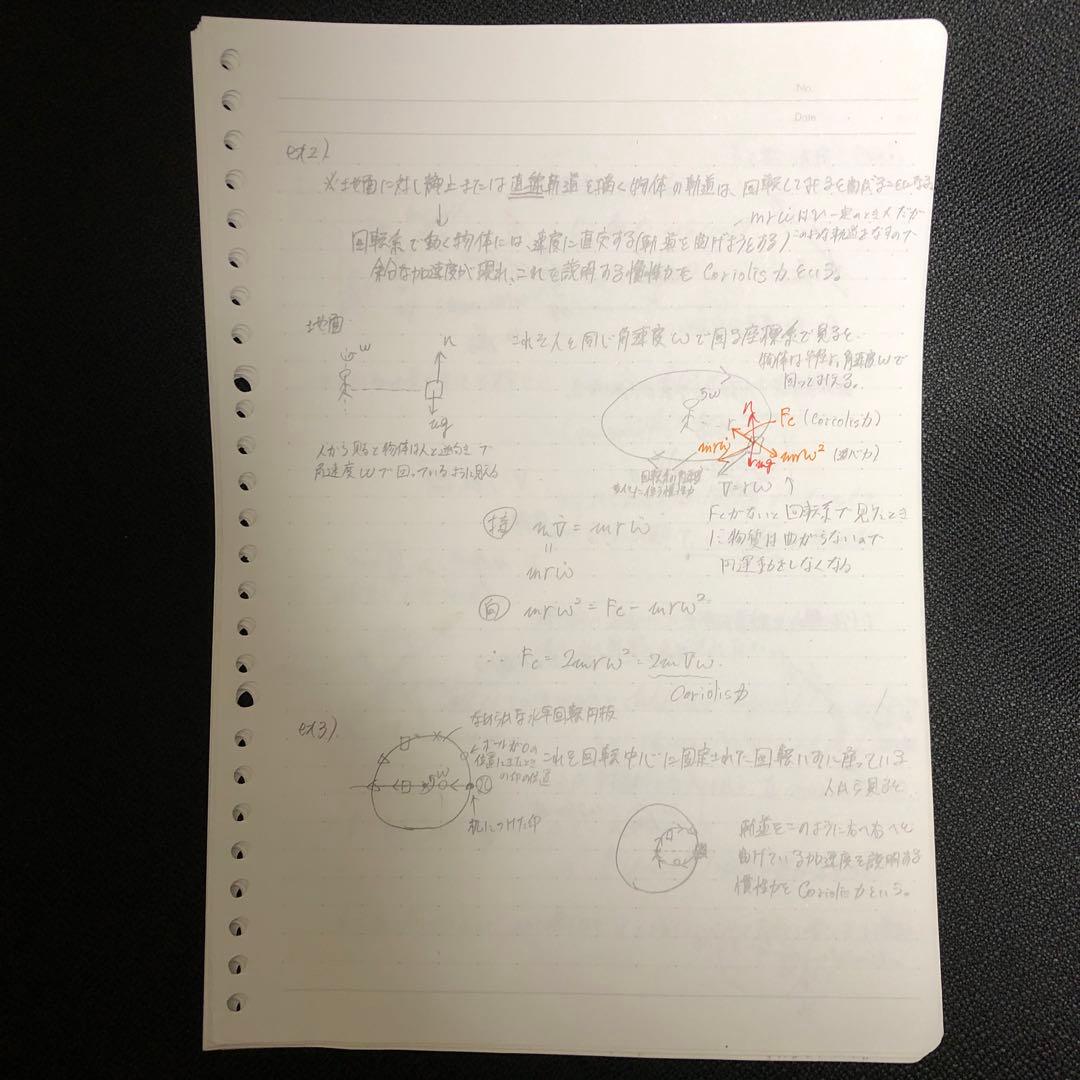 No.
Date
ex2).
※地面に対し静止または直線軌道を描く物体の軌道は、回転して見ると曲がることになる。
↓
mrω̇はωが一定のとき0だが
このような軌道をなすので
回転系で動く物体には、速度に直交する(軌道を曲げようとする)
余分な加速度が現れ、これを説明する慣性力をCoriolis力という。
地面
これを人と同じ角速度ωで回る座標系で見ると、
物体は半径r、角速度ωで
回って見える。
ω
n
mg
人から見ると物体は人と逆向きで
角速度ωで回っているように見える
ω
r
n
Fc (Coriolis力)
mrω̇
mrω² (遠心力)
mg
v=rω
回転系の角速度
変化に伴う慣性力
↑
Fcがないと回転系で見たとき
に物質は曲がらないので
円運動をしなくなる
接 mv̇ = mrω̇
=
mrω̇
向 mrω² = Fc − mrω²
∴ Fc = 2mrω² = 2mvω.
Coriolis力
ex3).
なめらかな水平回転円板
ボールが○の
位置にきたとき
の印の位置
ω
机につけた印
これを回転中心に固定された回転いすに座っている
人から見ると
軌道をこのように右へ右へと
曲げている加速度を説明する
慣性力をCoriolis力という。